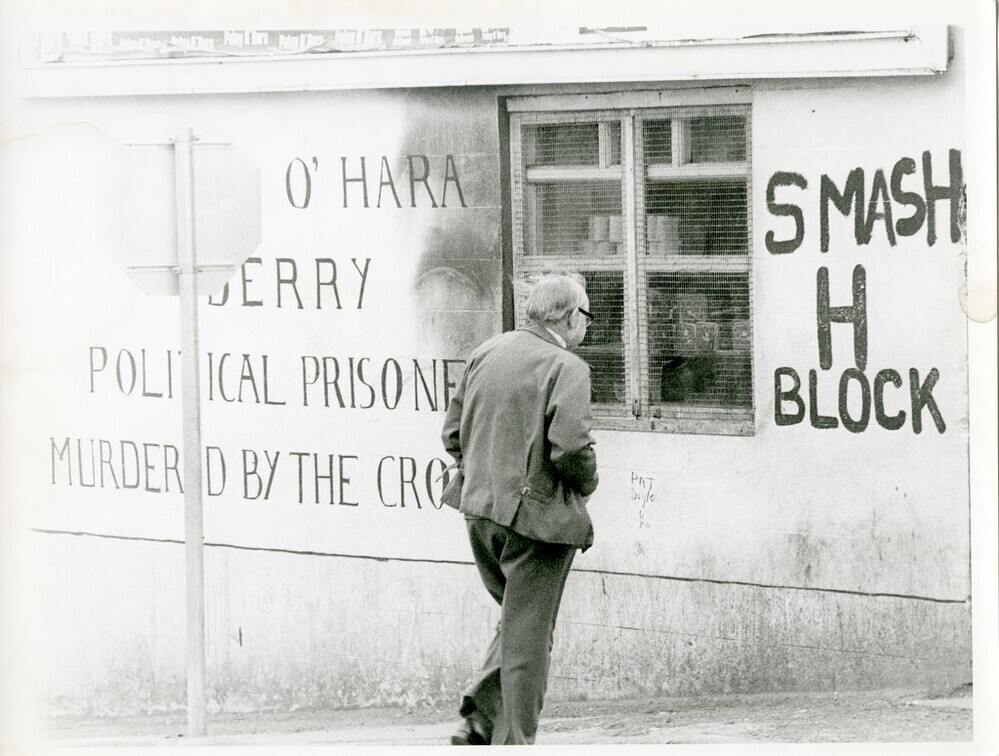 O' HARA
DERRY
POLITICAL PRISONE
MURDERED BY THE CRO
SMASH
H
BLOCK
PAT
Doyle